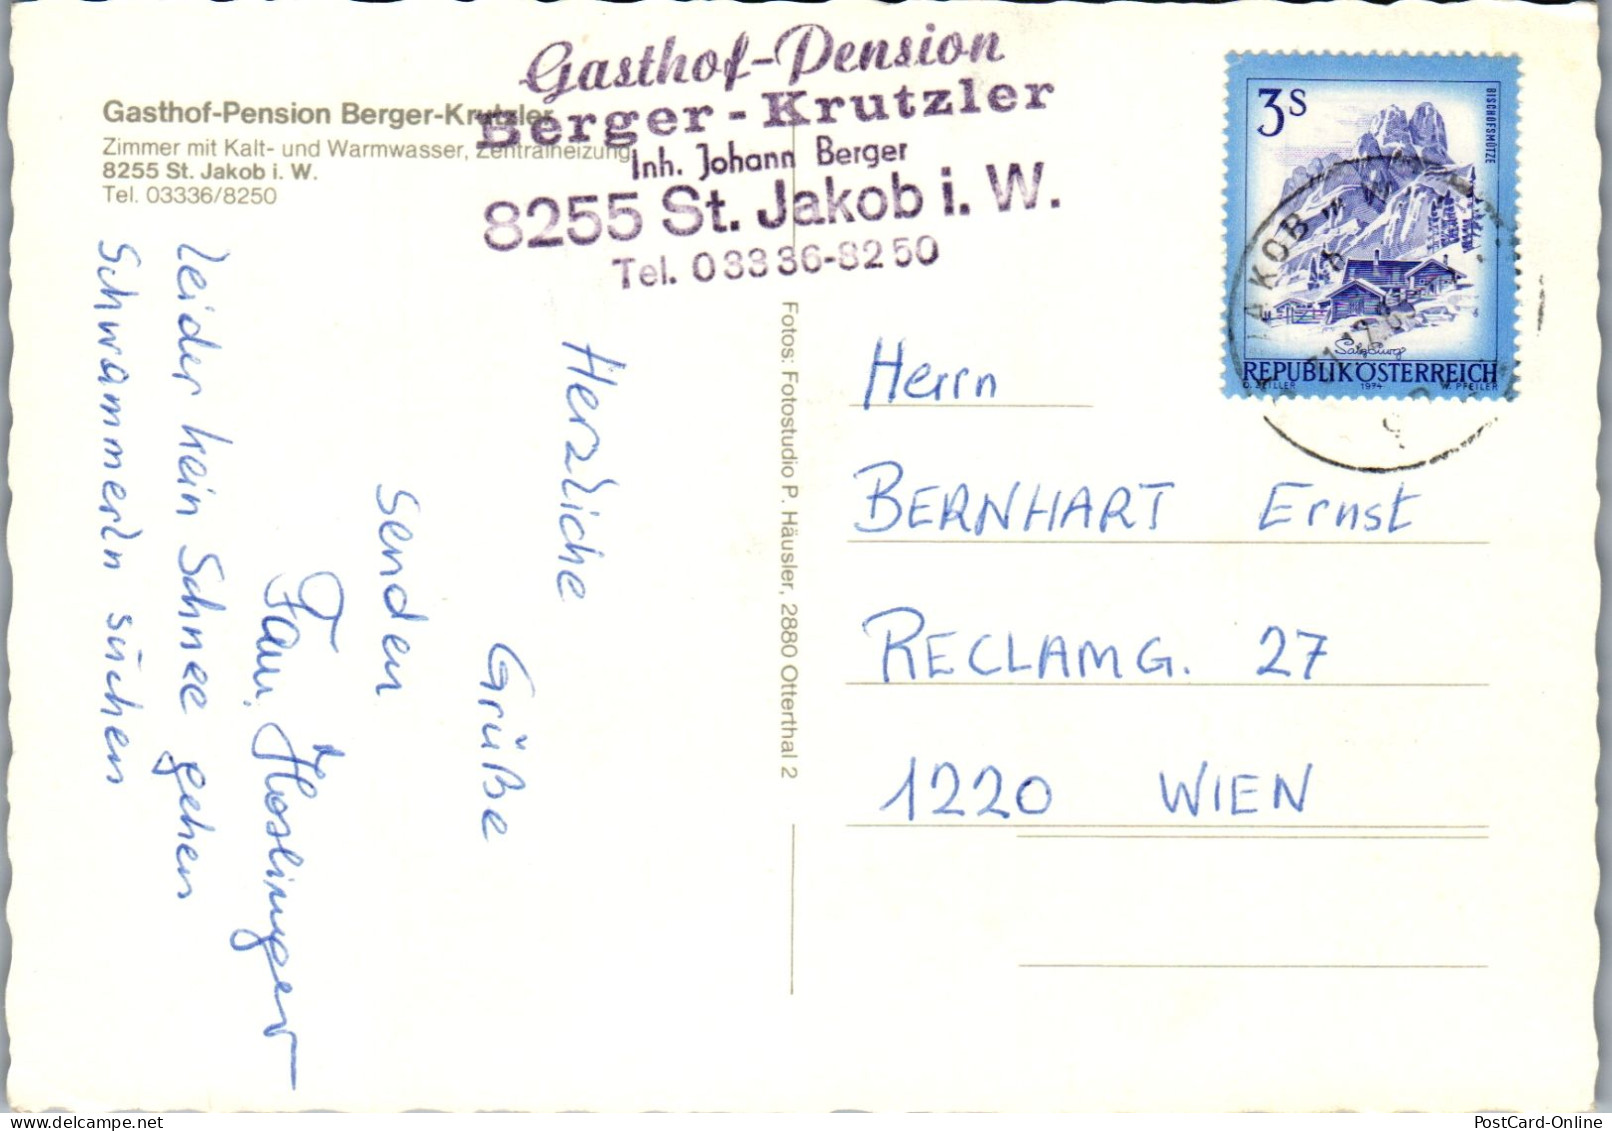 Gasthof-Pension Berger-Krutzler
Zimmer mit Kalt- und Warmwasser, Zentralheizung
8255 St. Jakob i. W.
Tel. 03336/8250
Gasthof-Pension
Berger-Krutzler
Inh. Johann Berger
8255 St. Jakob i. W.
Tel. 03336-8250
3s
BISCHOFSMÜTZE
Salzburg
REPUBLIK ÖSTERREICH
O. ZEILLER 1974 W. PFEILER
JAKOB
Herzliche
Grüße
senden
Fam. Hoslinger
leider kein Schnee gehen
Schwammerln suchen
Fotos: Fotostudio P. Häusler, 2880 Otterthal 2
Herrn
BERNHART Ernst
RECLAMG. 27
1220 WIEN
PostCard-Online